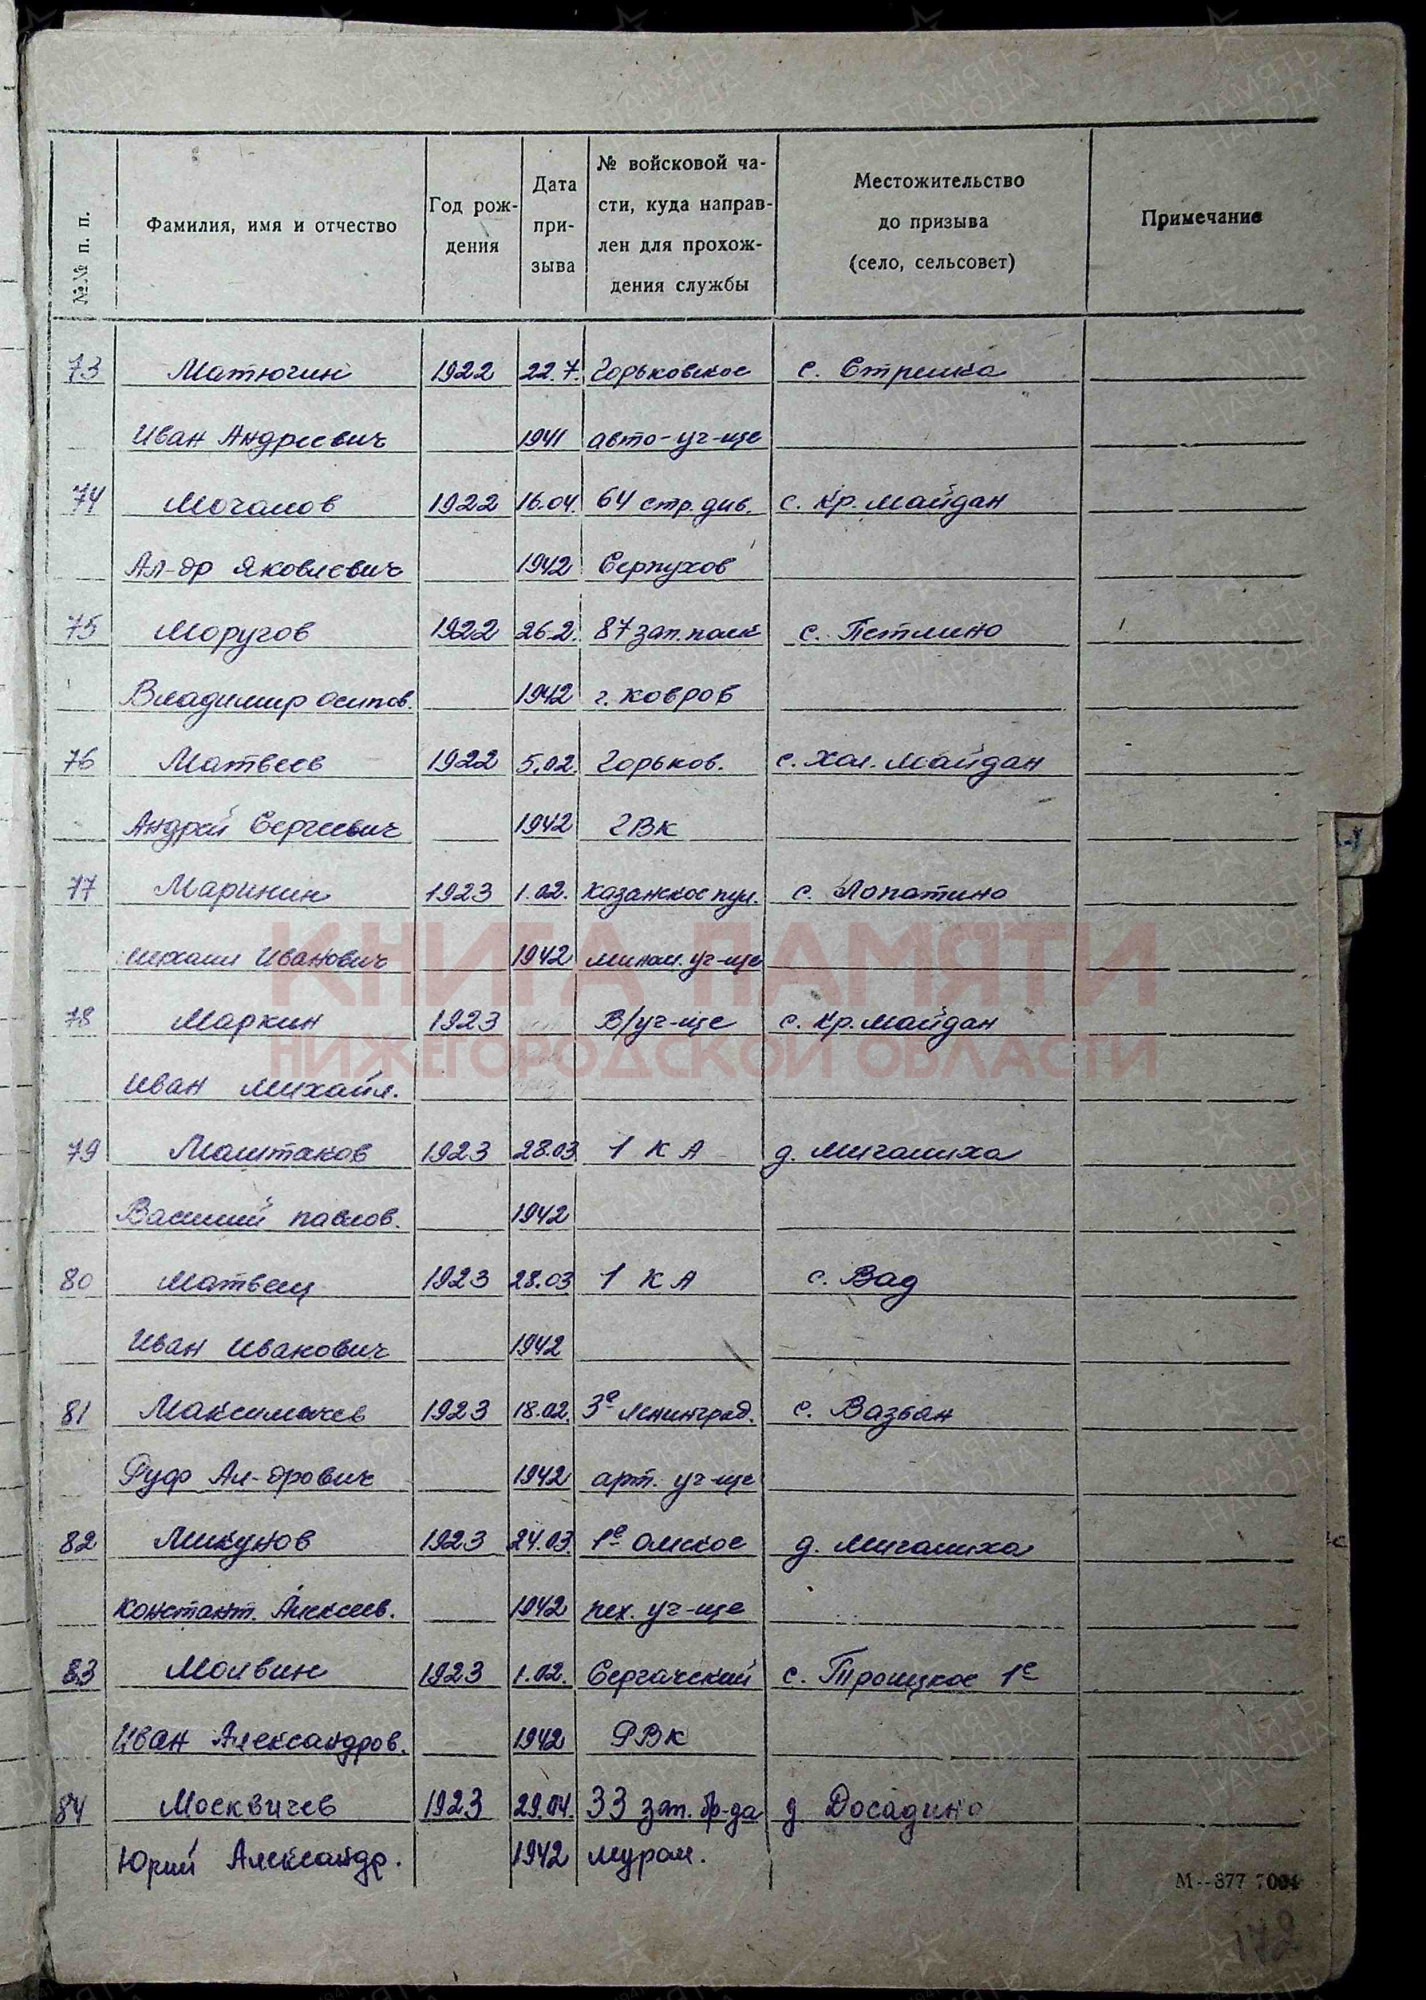 №№ п. п.
Фамилия, имя и отчество
Год рож-
дения
Дата
при-
зыва
№ войсковой ча-
сти, куда направ-
лен для прохож-
дения службы
Местожительство
до призыва
(село, сельсовет)
Примечание
73 Матюгин 1922 22.7. Горьковское с. Стрелка
Иван Андреевич 1941 авто-уч-ще
74 Мочалов 1922 16.04. 64 стр. див. с. Кр. Майдан
Ал-др Яковлевич 1942 Серпухов
75 Моругов 1922 26.2. 87 зап. полк с. Петлино
Владимир Осипов. 1942 г. Ковров
76 Матвеев 1922 5.02 Горьков. с. Хол. Майдан
Андрей Сергеевич 1942 ГВК
77 Маринин 1923 1.02. Казанское пул. с. Лопатино
Михаил Иванович 1942 мином. уч-ще
78 Маркин 1923 В/уч-ще с. Кр. Майдан
Иван Михайл.
79 Маштаков 1923 28.03 1 КА д. Мигалиха
Василий Павлов. 1942
80 Матвеиц 1923 28.03 1 КА с. Вад
Иван Иванович 1942
81 Максимычев 1923 18.02. 3е Ленинград. с. Вазьян
Руф Ал-дрович 1942 арт. уч-ще
82 Микунов 1923 24.03. 1е Омское д. Мигалиха
Констант. Алексеев. 1942 пех. уч-ще
83 Молвин 1923 1.02. Сергачский с. Троицкое 1е
Иван Александров. 1942 РВК
84 Москвичев 1923 29.04. 33 зап. бр-да д. Досадино
Юрий Александр. 1942 Муром.
М--377 7004
172
КНИГА ПАМЯТИ
НИЖЕГОРОДСКОЙ ОБЛАСТИ
ПАМЯТЬ
НАРОДА